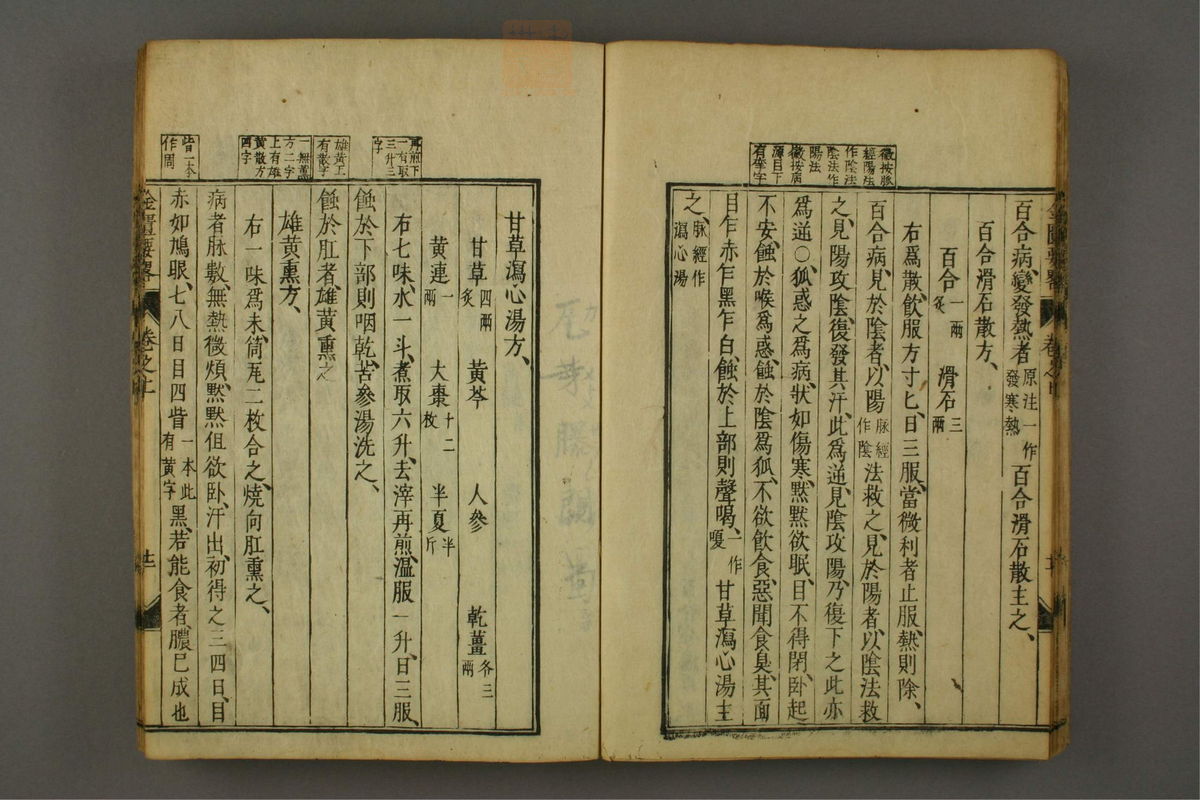 百合病變發熱者原注一作發寒熱百合滑石散主之
百合滑石散方
百合一兩炙 滑石三兩
右爲散飲服方寸匕日三服當微利者止服熱則除
百合病見於陰者以陽脉經作陰法救之見於陽者以陰法救
之見陽攻陰復發其汗此爲逆見陰攻陽乃復下之此亦
爲逆○狐惑之爲病狀如傷寒默默欲眠目不得閉卧起
不安蝕於喉爲惑蝕於陰爲狐不欲飲食惡聞食臭其面
目乍赤乍黑乍白蝕於上部則聲喝一作嗄甘草瀉心湯主
之脉經作瀉心湯
徵按脉
經陽法
作陰法
陰法作
陽法
徵按病
源目下
有眥字
甘草瀉心湯方
甘草四兩炙 黄芩 人參 乾薑各三兩
黄連一兩 大棗十二枚 半夏半斤
右七味水一斗煮取六升去滓再煎温服一升日三服
蝕於下部則咽乾苦參湯洗之
蝕於肛者雄黄熏之
雄黄熏方
右一味爲末筒瓦二枚合之燒向肛熏之
病者脉數無熱微煩默默但欲卧汗出初得之三四日目
赤如鳩眼七八日目四眥一本此有黄字黑若能食者膿已成也
再煎下
一有取
三升三
字
雄黄下
有散字
一無熏
方二字
上有雄
黄散方
四字
眥一本
作周
金匱要畧
卷之上